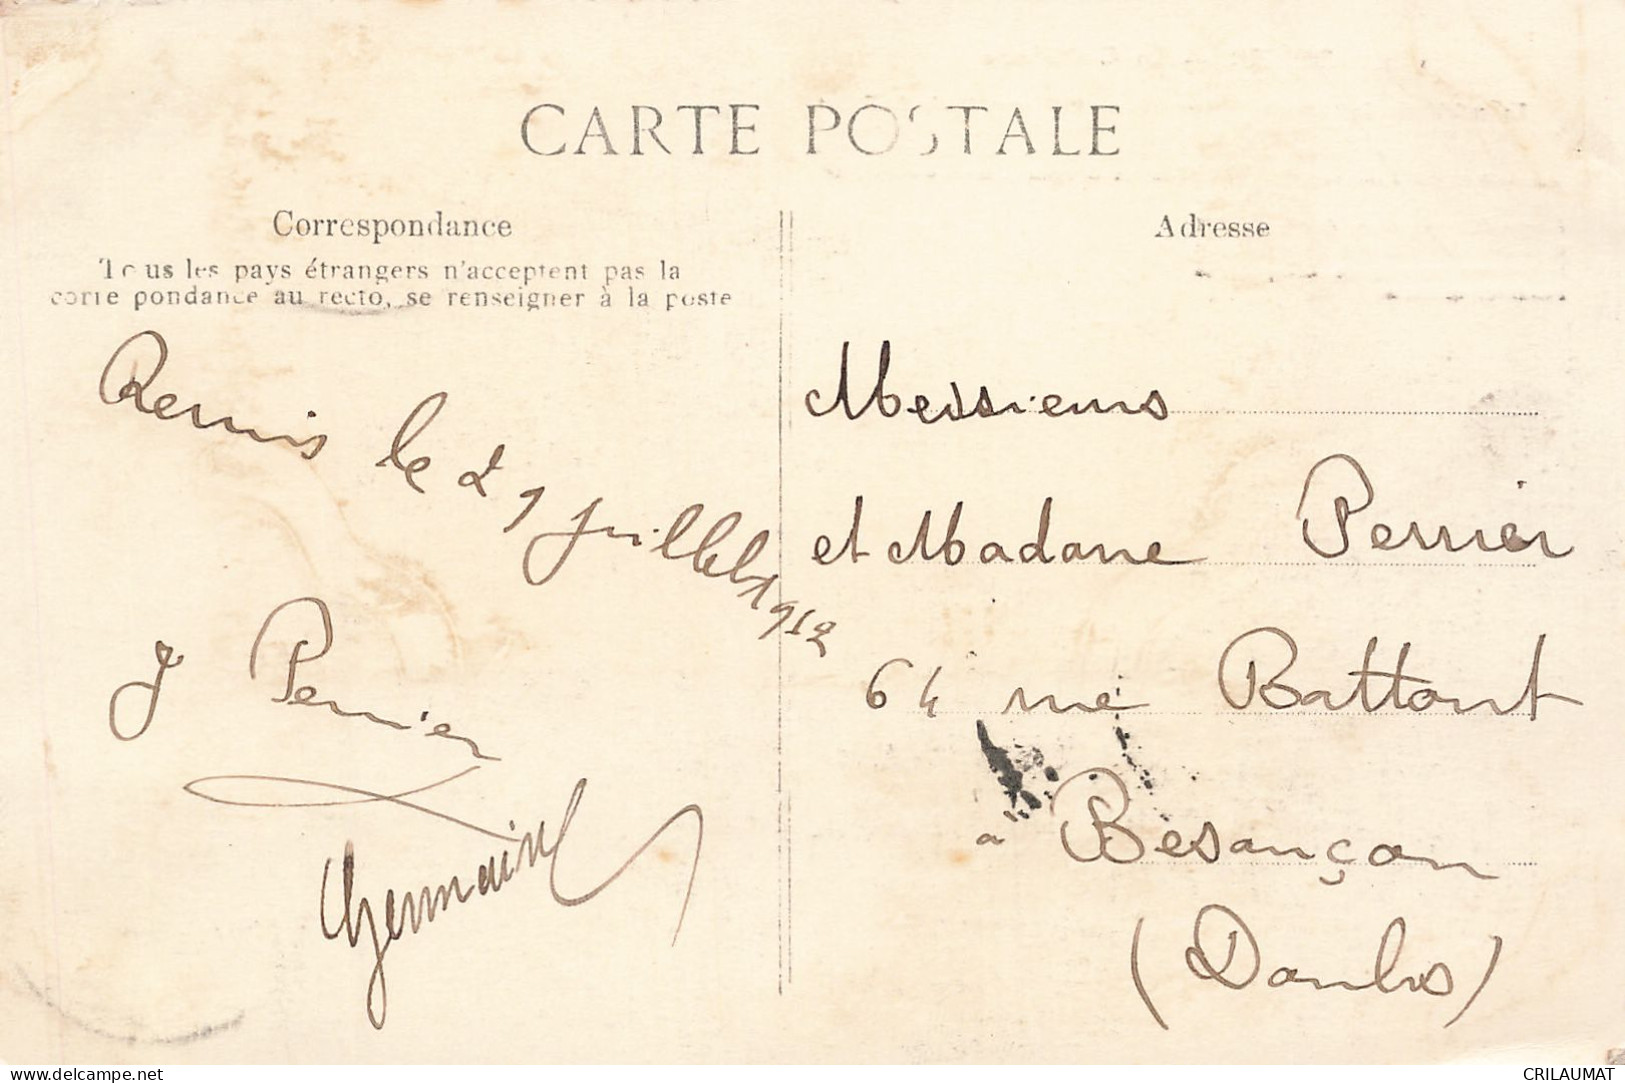 CARTE POSTALE
Correspondance
Tous les pays étrangers n'acceptent pas la
corre pondance au recto, se renseigner à la poste
Adresse
le 29 juillet 1912
J Perrier
Germain
Messieurs
et Madame Perrier
64 rue Battant
a Besançon
(Doubs)
www.delcampe.net
CRILAUMAT